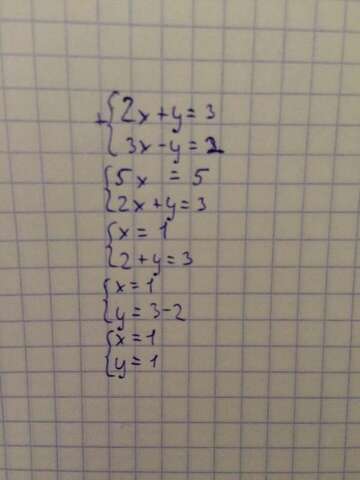 +{2x+y=3
{3x-y=2
{5x =5
{2x+y=3
{x=1
{2+y=3
{x=1
{y=3-2
{x=1
{y=1